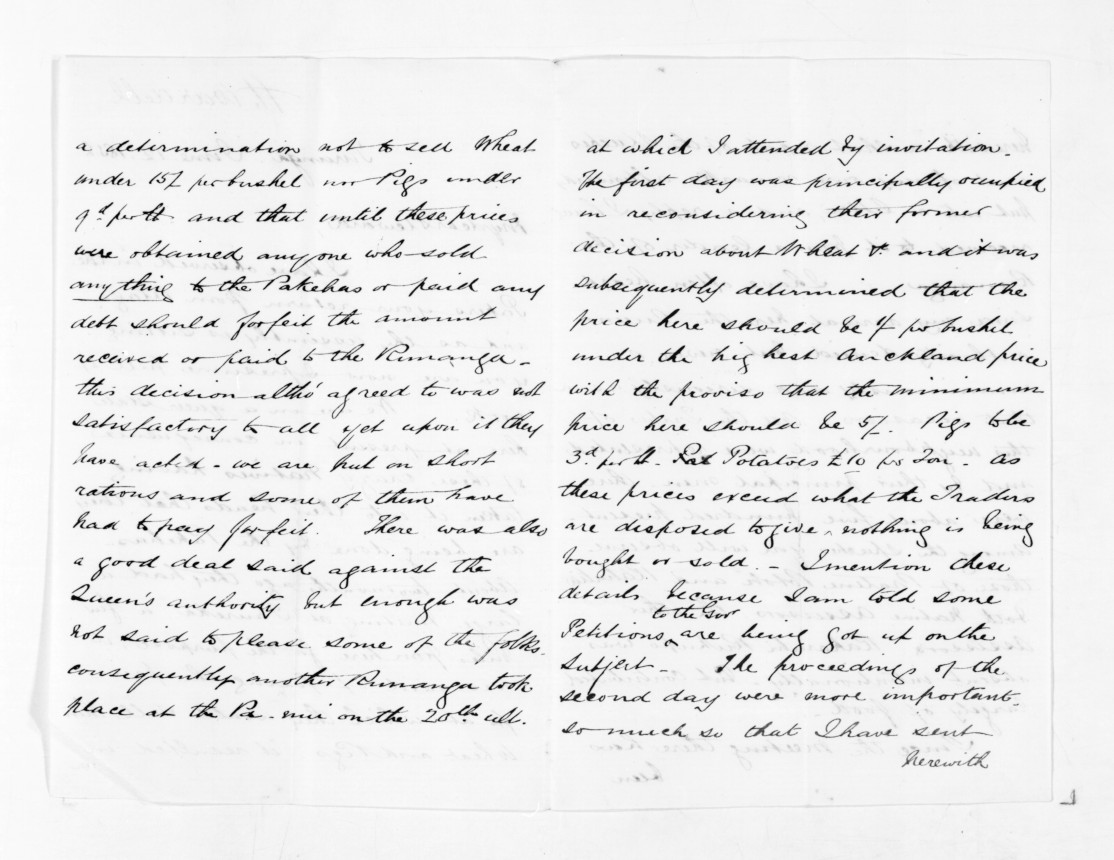 a determination not to sell Wheat
under 15/ per bushel nor Pigs under
9d per lb and that until these prices
were obtained anyone who sold
anything to the Pakehas or paid any
debt should forfeit the amount
received or paid to the Runanga -
this decision altho' agreed to was not
satisfactory to all yet upon it they
have acted - we are put on short
rations and some of them have
had to pay forfeit. There was also
a good deal said against the
Queen's authority but enough was
not said to please some of the folks.
consequently another Runanga took
place at the Pa - on the 20th ult.
at which I attended by invitation.
The first day was principally occupied
in reconsidering their former
decision about Wheat &c and it was
subsequently determined that the
price here should be 4/ per bushel
under the highest Auckland price
with the proviso that the minimum
price here should be 5/. Pigs to be
3d per lb. Potatoes £10 per Ton - as
these prices exceed what the Traders
are disposed to give, nothing is being
bought or sold. - I mention these
details because I am told some
to the Gov
Petitions ^ are being got up on the
subject - The proceedings of the
second day were more important -
so much so that I have sent
herewith